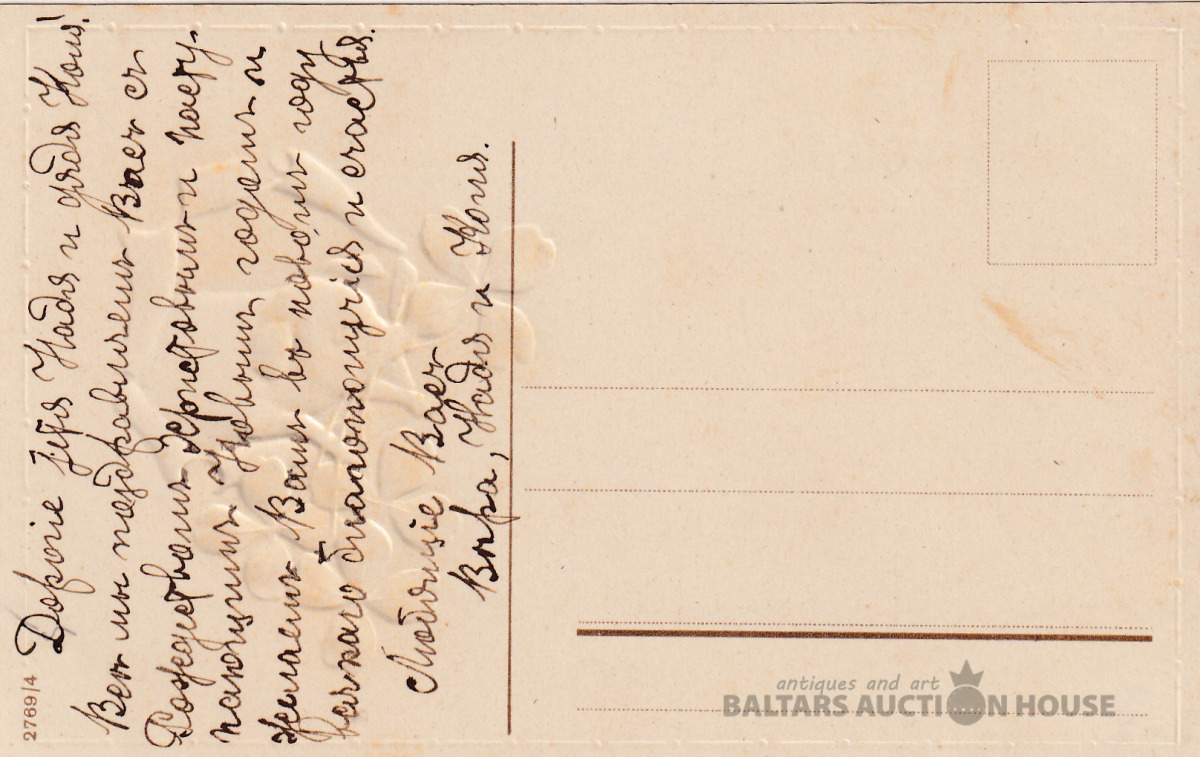 Дорогіе тетя Надя и дядя Коля!
Всѣ мы поздравляемъ Васъ съ
Рождествомъ Христовымъ и насту-
пающимъ Новымъ годомъ и
желаемъ Вамъ въ новомъ году
всякаго благополучія и счастья.
Любящіе Васъ
Вѣра, Надя и Коля.
2769/4
antiques and art
BALTARS AUCTION HOUSE